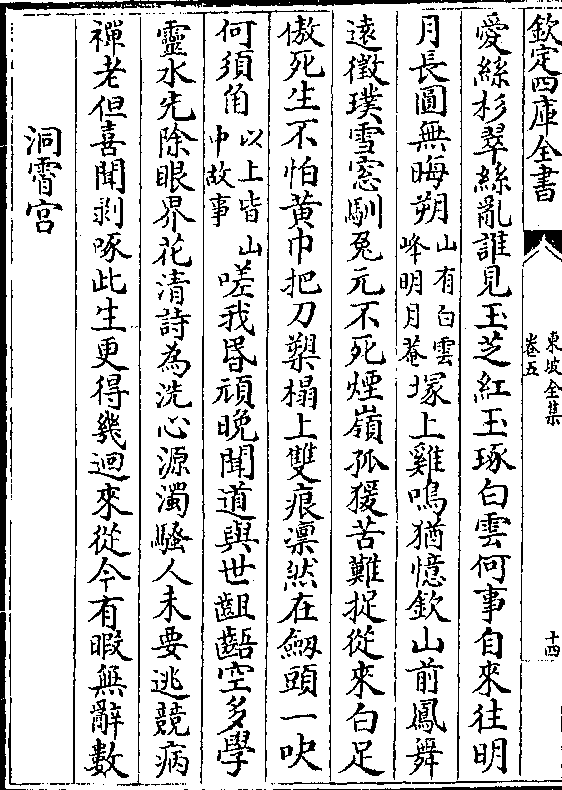 欽定四庫全書
東坡全集
卷五
十四
愛絲杉翠絲亂誰見玉芝紅玉琢白雲何事自來往明
月長圓無晦朔山有白雲峰明月菴塚上雞鳴猶憶欽山前鳳舞
遠徵璞雪窓馴兔元不死煙嶺孤猨苦難捉從來白足
傲死生不怕黄巾把刀槊榻上雙痕凛然在劒頭一吷
何須角以上皆山中故事嗟我昬頑晚聞道與世齟齬空多學
靈水先除眼界花清詩為洗心源濁騷人未要逃競病
禪老但喜聞剥啄此生更得幾迴來從今有暇無辭數
洞霄宫